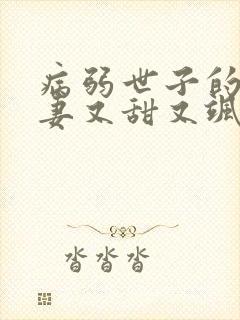 病弱世子的
妻又甜又飒
沓沓沓